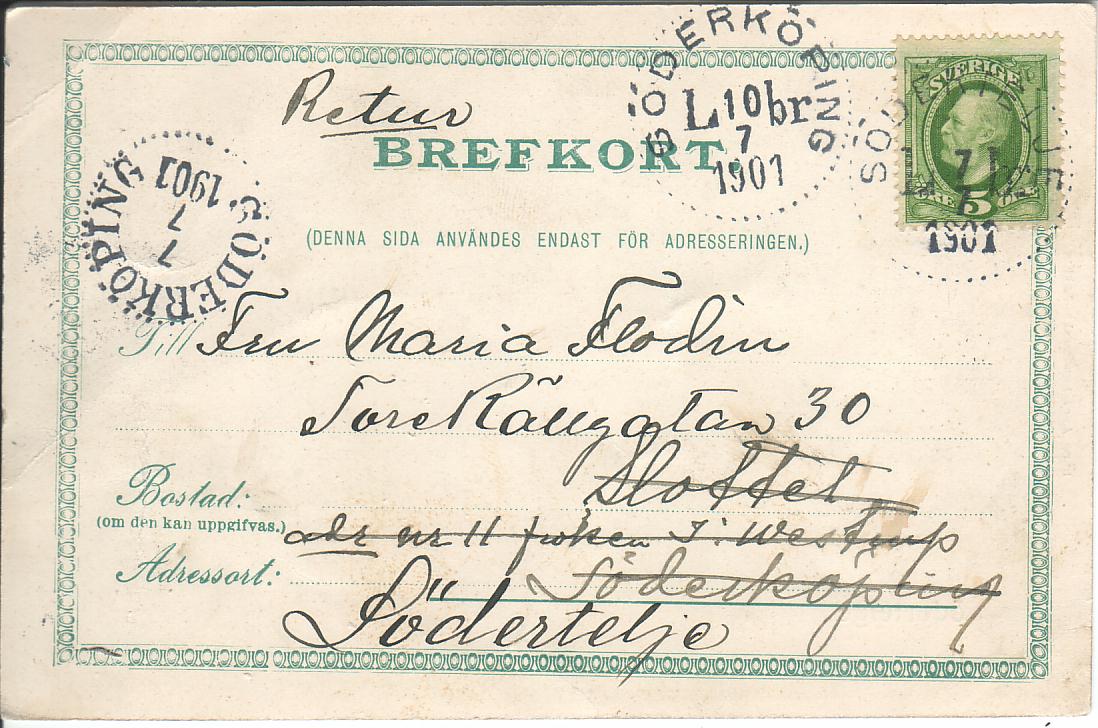 SÖDERKÖPING
L 10 br
7
1901
SVERIGE
5
SÖDERTELJE
7
1901
Retur
BREFKORT.
SÖDERKÖPING
7
7
1901
(DENNA SIDA ANVÄNDES ENDAST FÖR ADRESSERINGEN.)
Till Fru Maria Flodin
Torekällgatan 30
Slottet
Bostad:
(om den kan uppgifvas.)
adr nr 11 fröken I. Westrup
Adressort: Söderköping
Södertelje